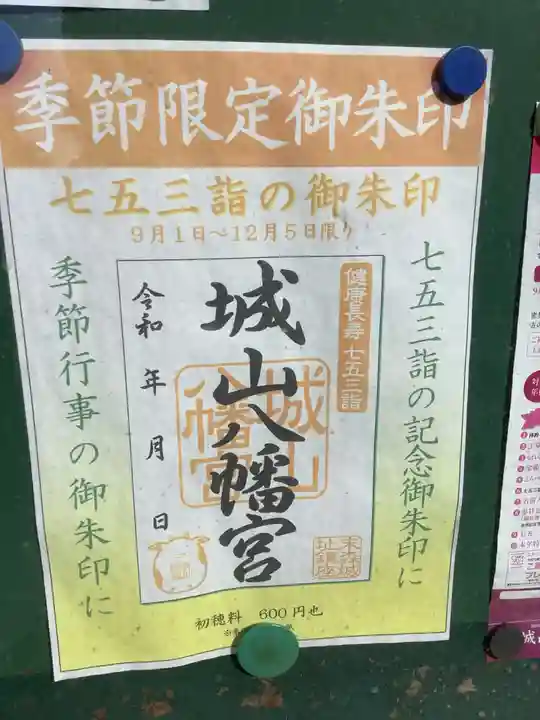 季節限定御朱印
七五三詣の御朱印
9月1日～12月5日限り
七五三詣の記念御朱印に
健康長寿 七五三詣
城山八幡宮
城山八幡宮
令和 年 月 日
末森城址鎮座
季節行事の御朱印に
初穂料 600円也